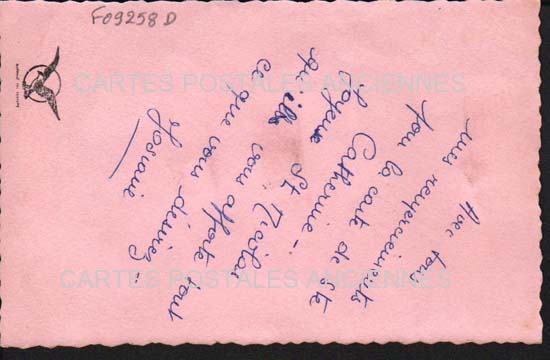 F09258 D
CARTES POSTALES ANCIENNES
CARTES POSTALES ANCIENNES
Avec tous
mes remerciements
pour la carte de Ste
Catherine -
Joyeux St Nicolas
qu'il vous apporte tout
ce que vous désirez -
Josiane